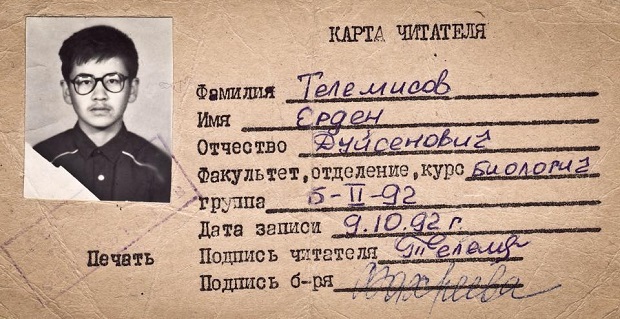 КАРТА ЧИТАТЕЛЯ
Фамилия Телемисов
Имя Ерден
Отчество Дуйсенович
Факультет, отделение, курс Биологич
группа Б-II-92
Дата записи 9.10.92 г.
Печать Подпись читателя
Подпись б-ря